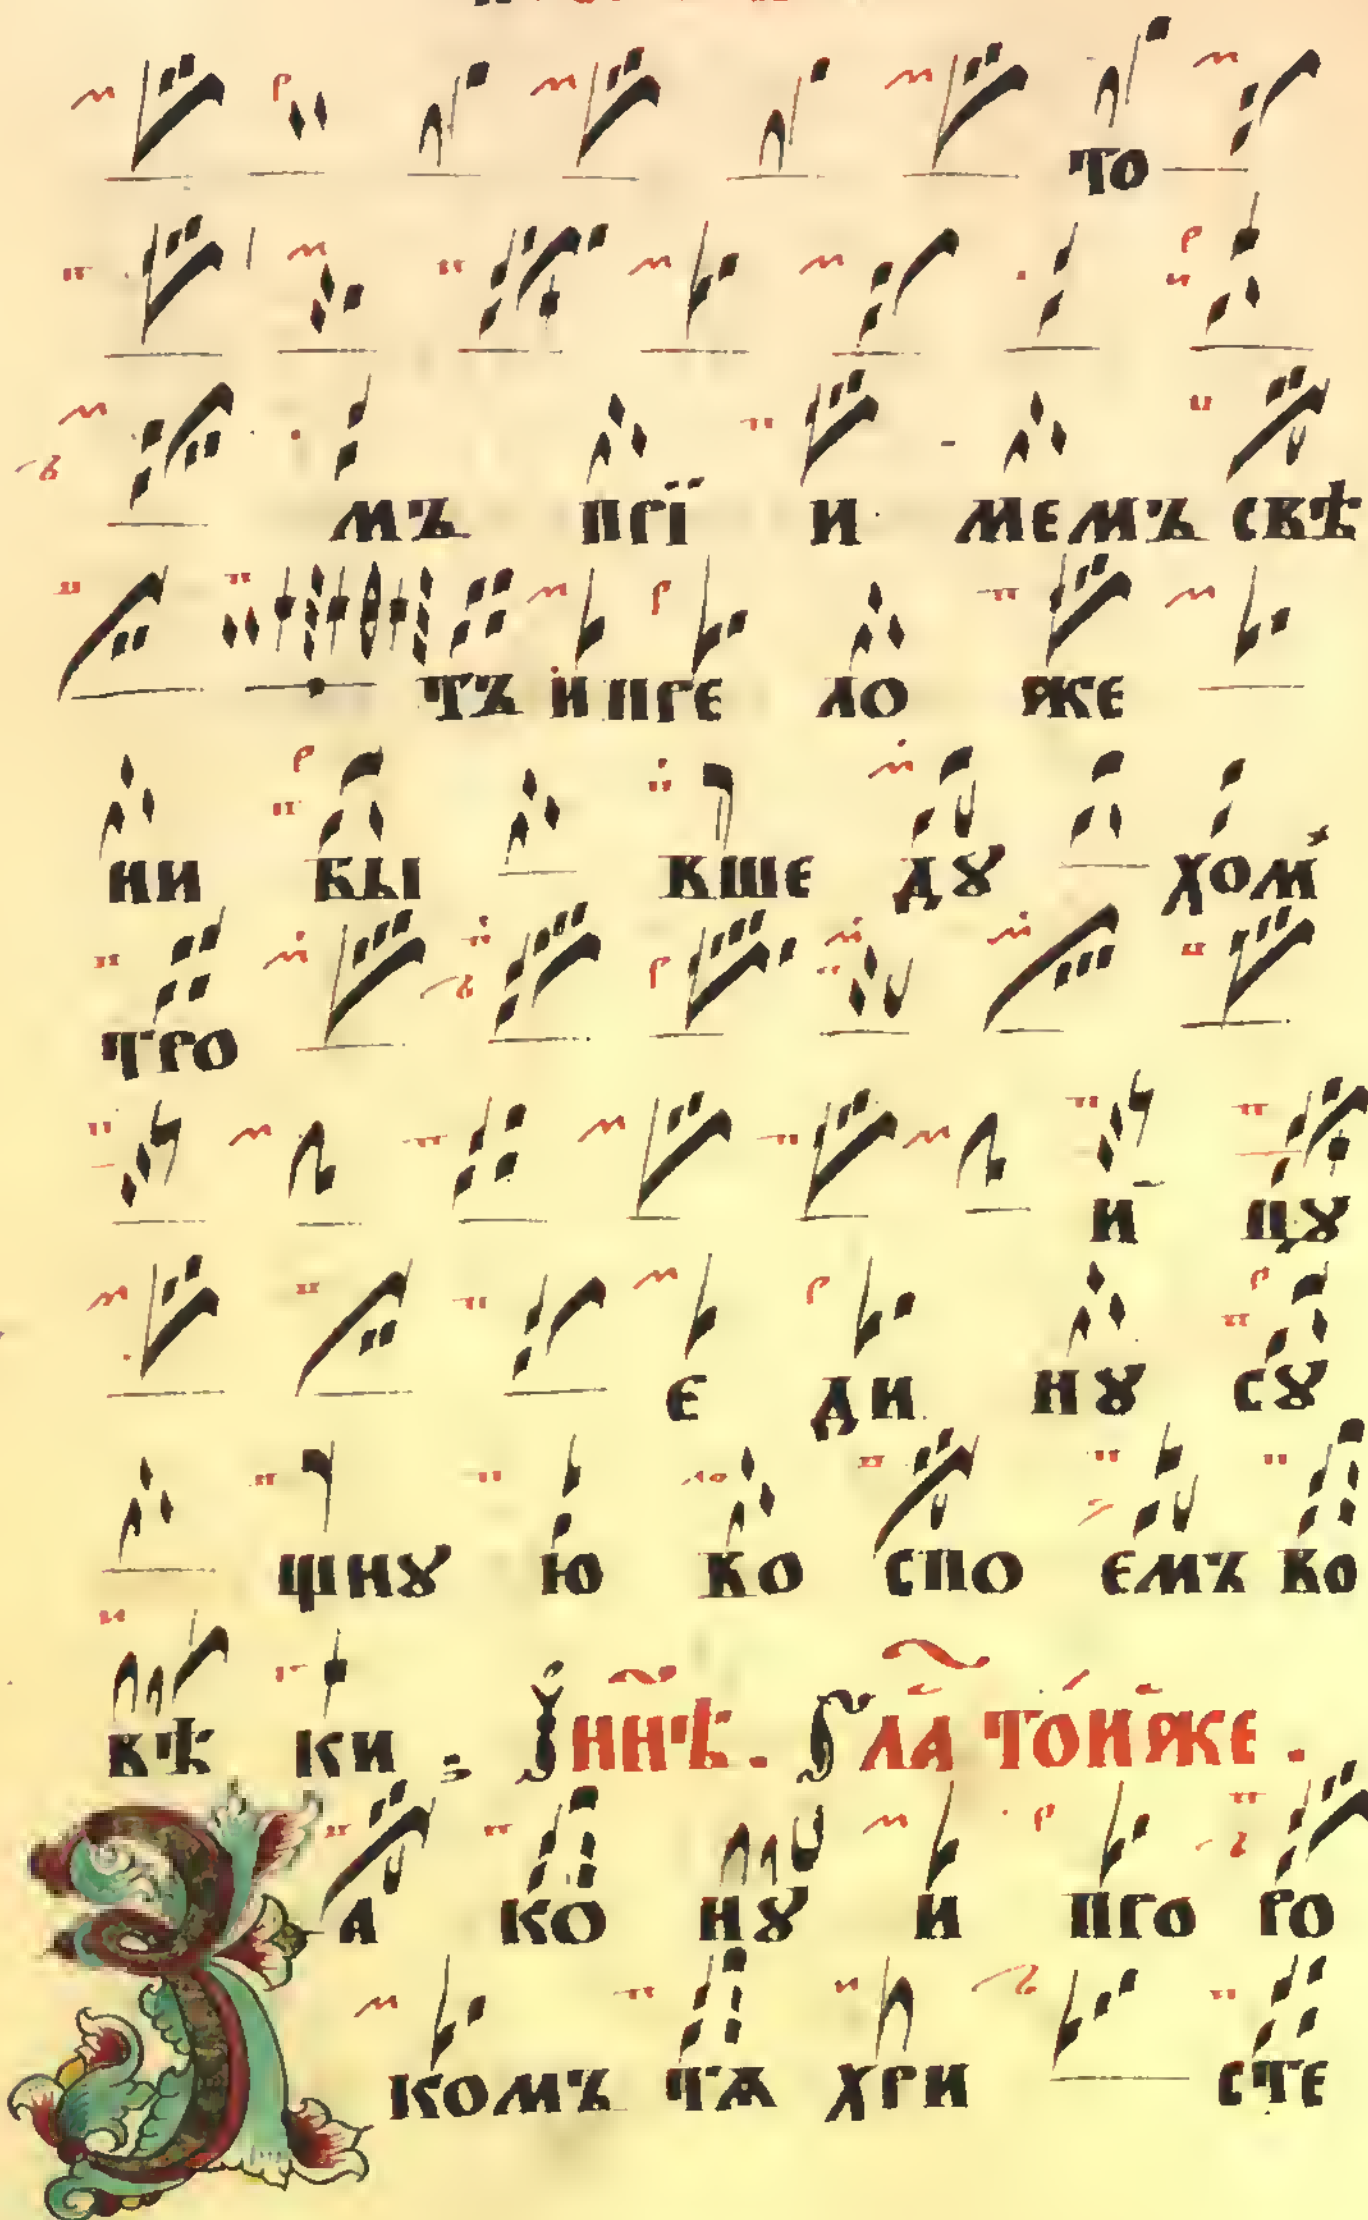 то
мъ прї и мемъ свѣ
тъ и пре ло же
ни бы вше дꙋ хом
тро
и цꙋ
є ди нꙋ сꙋ
щнꙋ ю во спо ємъ во
вѣ ки . И ннѣ. гла тойже .
З а ко нꙋ и про ро
комъ тѧ хри сте